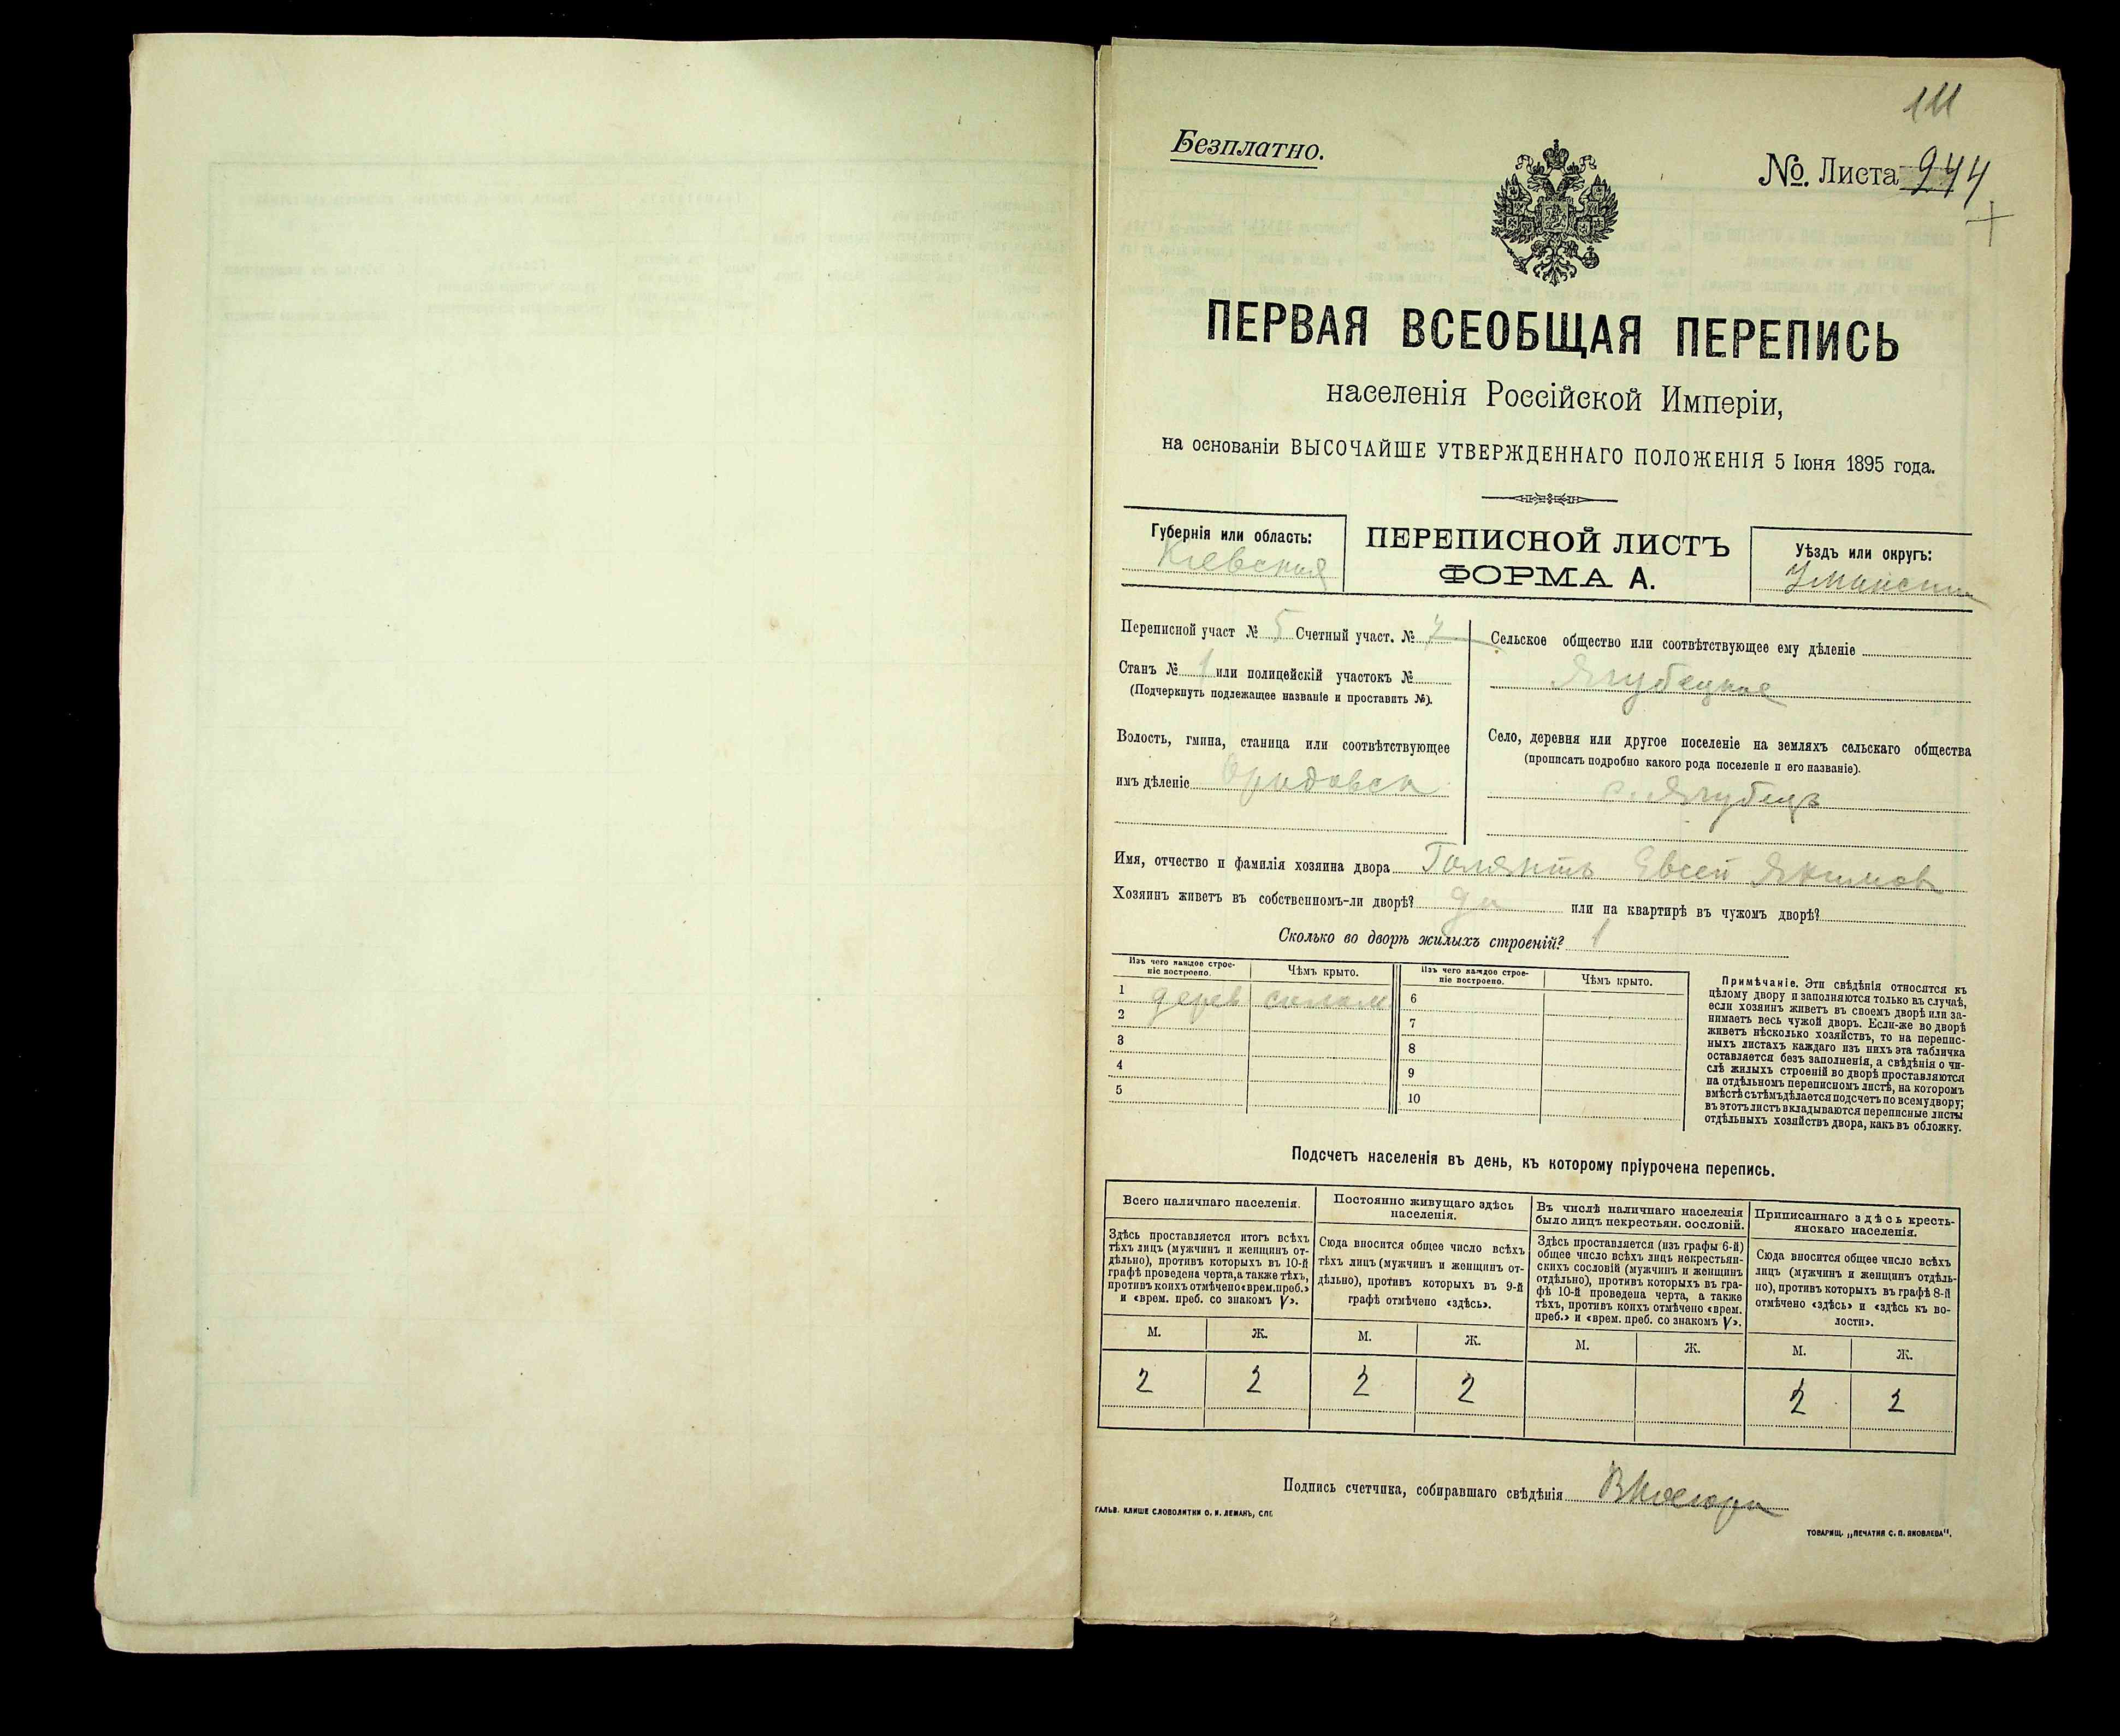 111
Безплатно.
№. Листа 244
ПЕРВАЯ ВСЕОБЩАЯ ПЕРЕПИСЬ
населенія Россійской Имперіи,
на основаніи ВЫСОЧАЙШЕ УТВЕРЖДЕННАГО ПОЛОЖЕНІЯ 5 Іюня 1895 года.
Губернія или область:
Кіевская
ПЕРЕПИСНОЙ ЛИСТЪ
ФОРМА А.
Уѣздъ или округъ:
Переписной участ № 5 Счетный участ. № 7
Станъ № 1 или полицейскій участокъ №
(Подчеркнуть подлежащее названіе и проставить №).
Волость, гмина, станица или соотвѣтствующее
имъ дѣленіе
Сельское общество или соотвѣтствующее ему дѣленіе
Ягубецкое
Село, деревня или другое поселеніе на земляхъ сельскаго общества
(прописать подробно какого рода поселеніе и его названіе).
с. Ягубецъ
Имя, отчество и фамилія хозяина двора Евсей Якимов
Хозяинъ живетъ въ собственномъ-ли дворѣ? да или на квартирѣ въ чужомъ дворѣ?
Сколько во дворѣ жилыхъ строеній? 1
Изъ чего каждое строе-
ніе построено.
Чѣмъ крыто.
Изъ чего каждое строе-
ніе построено.
Чѣмъ крыто.
1 дерев солом
2
3
4
5
6
7
8
9
10
Примѣчаніе. Эти свѣдѣнія относятся къ
цѣлому двору и заполняются только въ случаѣ,
если хозяинъ живетъ въ своемъ дворѣ или за-
нимаетъ весь чужой дворъ. Если-же во дворѣ
живетъ нѣсколько хозяйствъ, то на перепис-
ныхъ листахъ каждаго изъ нихъ эта табличка
оставляется безъ заполненія, а свѣдѣнія о чи-
слѣ жилыхъ строеній во дворѣ проставляются
на отдѣльномъ переписномъ листѣ, на которомъ
вмѣстѣ съ тѣмъ дѣлается подсчетъ по всему двору;
въ этотъ листъ вкладываются переписные листы
отдѣльныхъ хозяйствъ двора, какъ въ обложку.
Подсчетъ населенія въ день, къ которому пріурочена перепись.
Всего наличнаго населенія.
Здѣсь проставляется итогъ всѣхъ
тѣхъ лицъ (мужчинъ и женщинъ от-
дѣльно), противъ которыхъ въ 10-й
графѣ проведена черта, а также тѣхъ,
противъ коихъ отмѣчено «врем. преб.»
и «врем. преб. со знакомъ V».
Постоянно живущаго здѣсь
населенія.
Сюда вносится общее число всѣхъ
тѣхъ лицъ (мужчинъ и женщинъ от-
дѣльно), противъ которыхъ въ 9-й
графѣ отмѣчено «здѣсь».
Въ числѣ наличнаго населенія
было лицъ некрестьян. сословій.
Здѣсь проставляется (изъ графы 6-й)
общее число всѣхъ лицъ некрестьян-
скихъ сословій (мужчинъ и женщинъ
отдѣльно), противъ которыхъ въ гра-
фѣ 10-й проведена черта, а также
тѣхъ, противъ коихъ отмѣчено «врем.
преб.» и «врем. преб. со знакомъ V».
Приписаннаго здѣсь кресть-
янскаго населенія.
Сюда вносится общее число всѣхъ
лицъ (мужчинъ и женщинъ отдѣль-
но), противъ которыхъ въ графѣ 8-й
отмѣчено «здѣсь» и «здѣсь къ во-
лости».
М. Ж. М. Ж. М. Ж. М. Ж.
2 2 2 2 2 2
Подпись счетчика, собиравшаго свѣдѣнія
ГАЛЬВ. КЛИШЕ СЛОВОЛИТНИ О. И. ЛЕМАНЪ, СПГ.
ТОВАРИЩ. „ПЕЧАТНЯ С. П. ЯКОВЛЕВА".